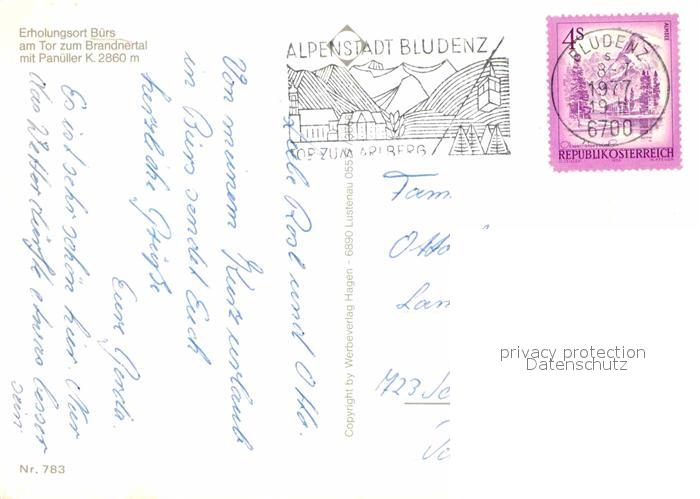 Erholungsort Bürs
am Tor zum Brandnertal
mit Panüller K. 2860 m
ALPENSTADT BLUDENZ
TOR ZUM ARLBERG
BLUDENZ
1977
6700
4S
ALMSEE
REPUBLIK ÖSTERREICH
Liebe Rosl und Otto.
Von meinem Kurzurlaub
in Bürs sendet Euch
herzliche Grüße
Eure Gerda.
Es ist sehr schön hier. Nur
das Wetter dürfte etwas besser
sein.
Copyright by Werbeverlag Hagen - 6890 Lustenau 055
Fam.
Otto
Lam
723
privacy protection
Datenschutz
Nr. 783